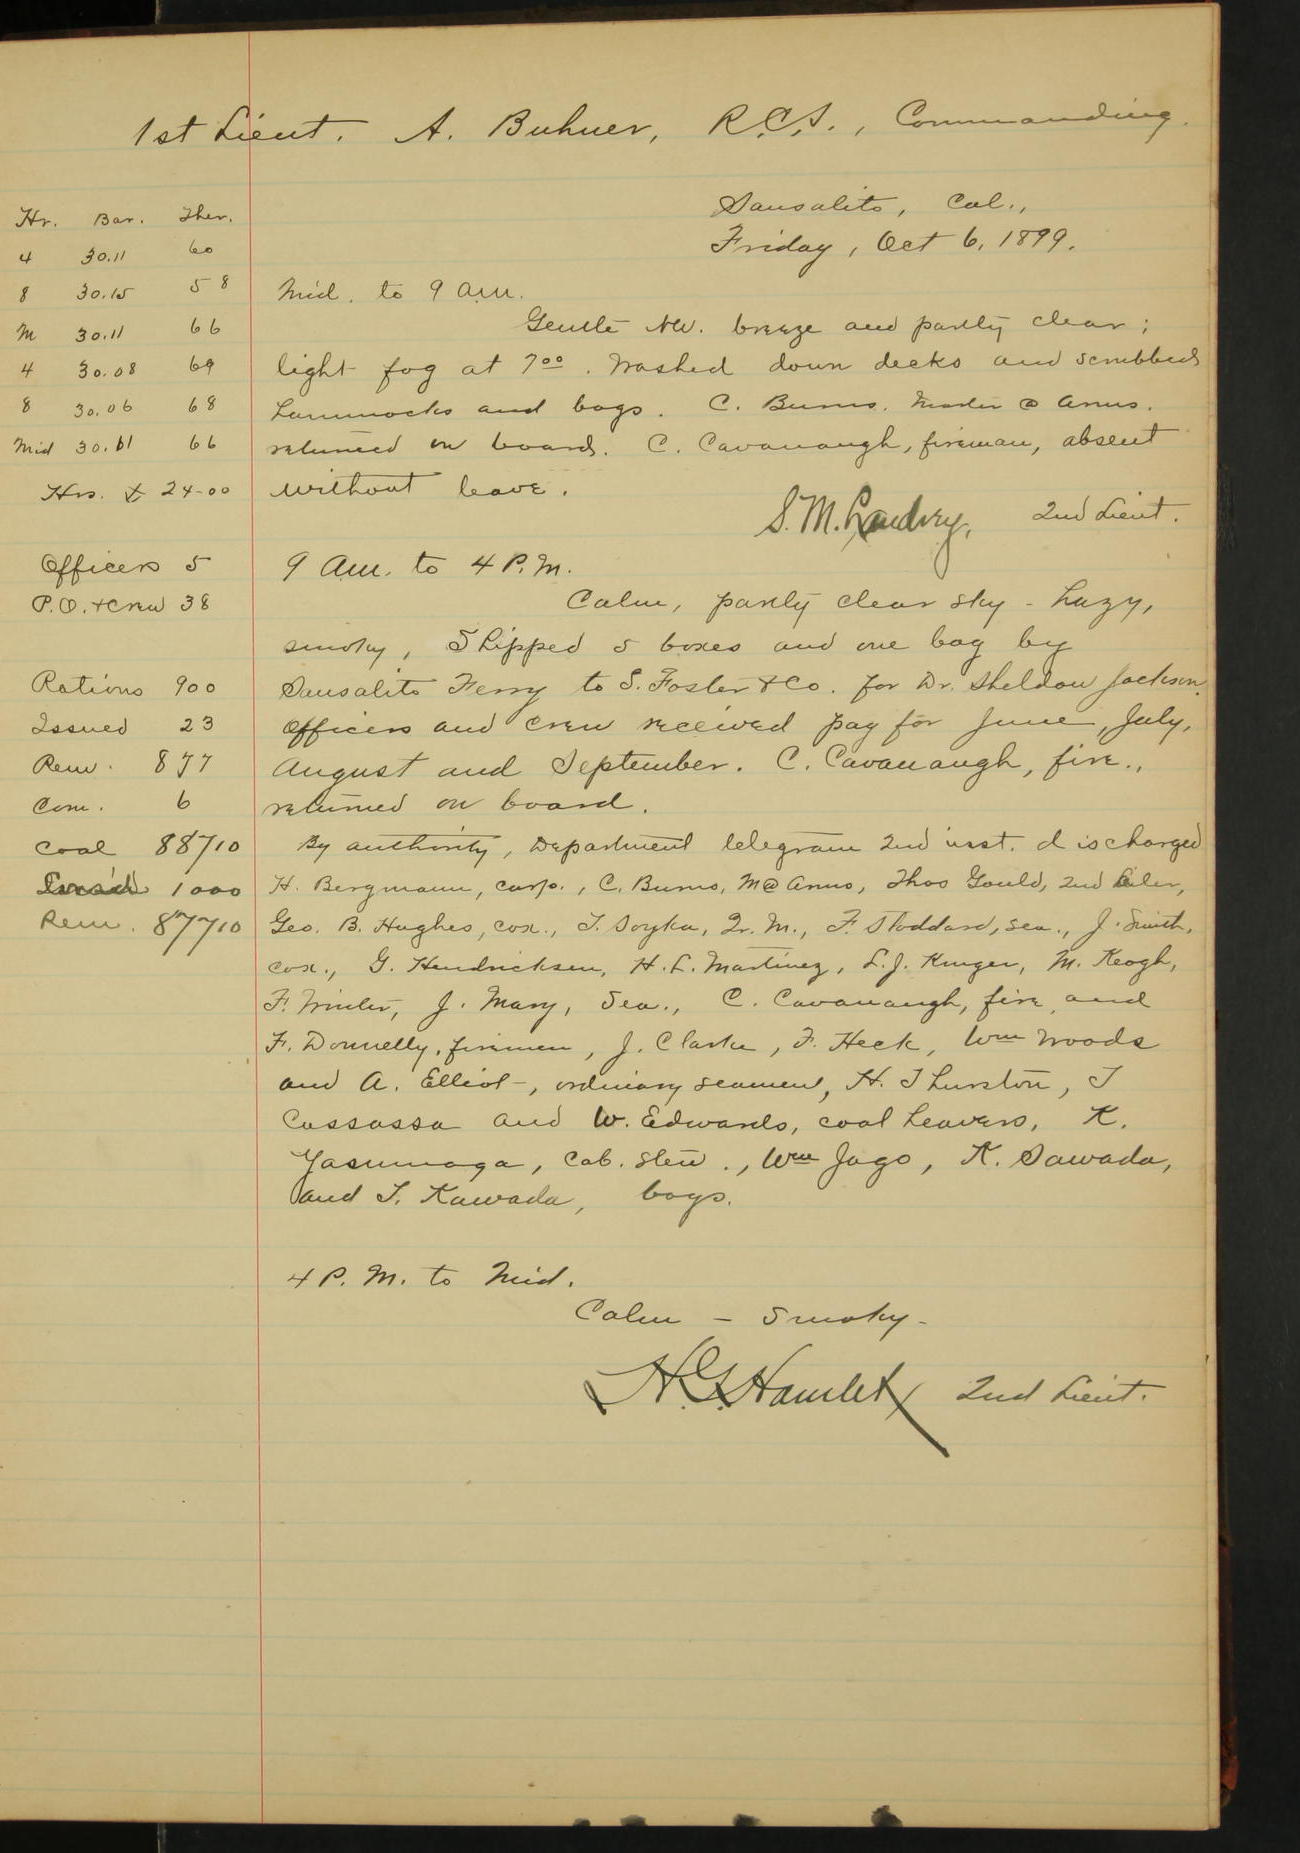 1st Lieut. A. Buhner, R.C.S., Commanding.
Sausalito, Cal.,
Friday, Oct 6, 1899.
Hr. Bar. Ther.
4 30.11 60
8 30.15 58
M 30.11 66
4 30.08 69
8 30.06 68
Mid 30.61 66
Hrs. 24-00
Officers 5
P.O. + crew 38
Rations 900
Issued 23
Rem. 877
Com. 6
Coal 88710
1000
Rem. 87710
Mid. to 9 a.m.
Gentle NW. breeze and partly clear;
light fog at 7⁰⁰. Washed down decks and scrubbed
hammocks and bags. C. Burns. Master @ Arms.
returned on board. C. Cavanaugh, fireman, absent
without leave.
S.M. Landrey, 2nd Lieut.
9 a.m. to 4 P.M.
Calm, partly clear sky - hazy,
smoky, Shipped 5 boxes and one bag by
Sausalito Ferry to S. Foster & Co. for Dr. Sheldon Jackson.
Officers and crew received pay for June, July,
August and September. C. Cavanaugh, fire.,
returned on board.
By authority, Department telegram 2nd inst. discharged
H. Bergmann, carp., C. Burns, M@Arms, Thos Gould, 2nd Oiler,
Geo. B. Hughes, cox., T. Soyka, Qr. M., F. Stoddard, sea., J. Smith,
cox., G. Hendricksen, H. L. Martinez, L. J. Kruger, M. Keogh,
F. Winter, J. Mary, Sea., C. Cavanaugh, fire and
F. Donnelly, firemen, J. Clarke, F. Heck, Wm Woods
and A. Elliot, ordinary seamen, H. Thurston, J
Cassassa and W. Edwards, coal heavers, K.
Yasumaga, Cab. stew., Wm Jago, K. Sawada,
and T. Kawada, boys.
4 P.M. to Mid.
Calm - Smoky -
H.G. Hamlet 2nd Lieut.